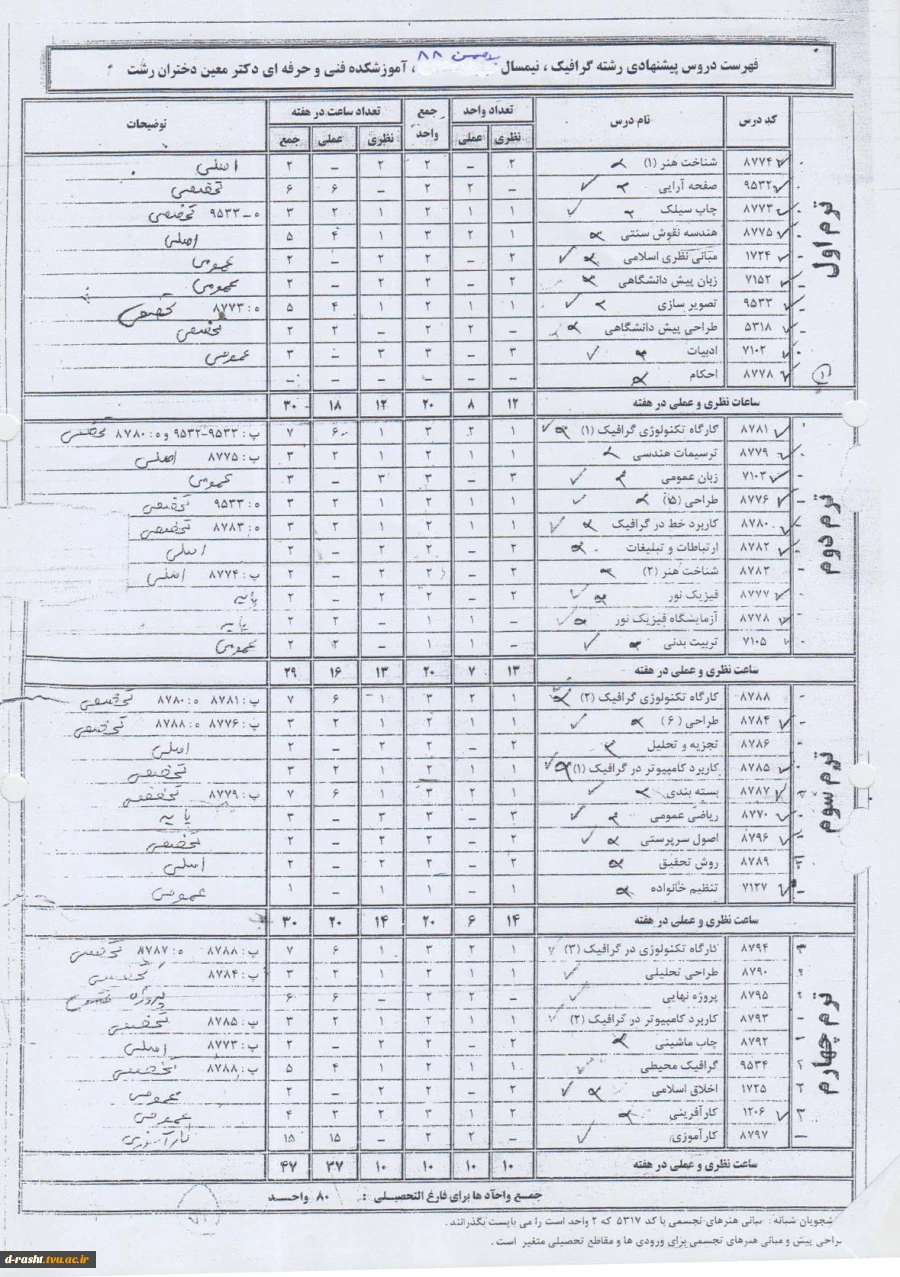 فهرست دروس پیشنهادی رشته گرافیک ، نیمسال بهمن ۸۸ ، آموزشکده فنی و حرفه ای دکتر معین دختران رشت
کد درس نام درس تعداد واحد جمع واحد تعداد ساعت در هفته توضیحات
نظری عملی نظری عملی جمع
ترم اول
۸۷۷۴ شناخت هنر (۱) ۲ – ۲ ۲ – ۲ اصلی
۹۵۳۲ صفحه آرایی – ۲ ۲ – ۶ ۶ تخصصی
۸۷۷۳ چاپ سیلک ۱ ۱ ۲ ۱ ۲ ۳ ه – ۹۵۳۳ تخصصی
۸۷۷۵ هندسه نقوش سنتی ۱ ۲ ۳ ۱ ۴ ۵ اصلی
۱۷۲۴ مبانی نظری اسلامی ۲ – ۲ ۲ – ۲ عمومی
۷۱۵۲ زبان پیش دانشگاهی ۲ – ۲ ۲ – ۲ عمومی
۹۵۳۳ تصویر سازی ۱ ۱ ۲ ۱ ۴ ۵ ه : ۸۷۷۳ تخصصی
۵۳۱۸ طراحی پیش دانشگاهی – ۲ ۲ – ۲ ۲ تخصصی
۷۱۰۲ ادبیات ۳ – ۳ ۳ – ۳ عمومی
۸۷۷۸ احکام – – – – – –
ساعات نظری و عملی در هفته ۱۲ ۸ ۲۰ ۱۲ ۱۸ ۳۰
ترم دوم
۸۷۸۱ کارگاه تکنولوژی گرافیک (۱) ۱ ۲ ۳ ۱ ۶ ۷ پ : ۹۵۳۳-۹۵۳۲ و ه : ۸۷۸۰ تخصصی
۸۷۷۹ ترسیمات هندسی ۱ ۱ ۲ ۱ ۲ ۳ پ : ۸۷۷۵ اصلی
۷۱۰۳ زبان عمومی ۳ – ۳ ۳ – ۳ عمومی
۸۷۷۶ طراحی (۵) ۱ ۱ ۲ ۱ ۲ ۳ ه : ۹۵۳۳ تخصصی
۸۷۸۰ کاربرد خط در گرافیک ۱ ۱ ۲ ۱ ۲ ۳ ه : ۸۷۸۳ تخصصی
۸۷۸۲ ارتباطات و تبلیغات ۲ – ۲ ۲ – ۲ اصلی
۸۷۸۳ شناخت هنر (۲) ۲ – ۲ ۲ – ۲ پ : ۸۷۷۴ اصلی
۸۷۷۷ فیزیک نور ۲ – ۲ ۲ – ۲ پایه
۸۷۷۸ آزمایشگاه فیزیک نور – ۱ ۱ – ۲ ۲ پایه
۷۱۰۵ تربیت بدنی – ۱ ۱ – ۲ ۲ عمومی
ساعت نظری و عملی در هفته ۱۳ ۷ ۲۰ ۱۳ ۱۶ ۲۹
ترم سوم
۸۷۸۸ کارگاه تکنولوژی گرافیک (۲) ۱ ۲ ۳ ۱ ۶ ۷ پ : ۸۷۸۱ ه : ۸۷۸۰ تخصصی
۸۷۸۴ طراحی (۶) ۱ ۱ ۲ ۱ ۲ ۳ پ : ۸۷۷۶ ه : ۸۷۸۸ تخصصی
۸۷۸۶ تجزیه و تحلیل ۲ – ۲ ۲ – ۲ اصلی
۸۷۸۵ کاربرد کامپیوتر در گرافیک (۱) ۱ ۱ ۲ ۱ ۲ ۳ تخصصی
۸۷۸۷ بسته بندی ۱ ۲ ۳ ۱ ۶ ۷ پ : ۸۷۷۹ تخصصی
۸۷۷۰ ریاضی عمومی ۳ – ۳ ۳ – ۳ پایه
۸۷۹۶ اصول سرپرستی ۲ – ۲ ۲ – ۲ تخصصی
۸۷۸۹ روش تحقیق ۲ – ۲ ۲ – ۲ اصلی
۷۱۲۷ تنظیم خانواده ۱ – ۱ ۱ – ۱ عمومی
ساعت نظری و عملی در هفته ۱۴ ۶ ۲۰ ۱۴ ۲۰ ۳۰
ترم چهارم
۸۷۹۴ کارگاه تکنولوژی در گرافیک (۳) ۱ ۲ ۳ ۱ ۶ ۷ پ : ۸۷۸۸ ه : ۸۷۸۷ تخصصی
۸۷۹۰ طراحی تحلیلی ۱ ۱ ۲ ۱ ۲ ۳ پ : ۸۷۸۴ تخصصی
۸۷۹۵ پروژه نهایی – ۲ ۲ – ۶ ۶ پروژه
۸۷۹۳ کاربرد کامپیوتر در گرافیک (۲) ۱ ۱ ۲ ۱ ۲ ۳ پ : ۸۷۸۵ تخصصی
۸۷۹۲ چاپ ماشینی ۲ – ۲ ۲ – ۲ پ : ۸۷۷۳ اصلی
۹۵۳۴ گرافیک محیطی ۱ ۱ ۲ ۱ ۴ ۵ پ : ۸۷۸۸ تخصصی
۱۷۲۵ اخلاق اسلامی ۲ – ۲ ۲ – ۲ عمومی
۱۲۰۶ کارآفرینی ۲ ۱ ۳ ۲ ۲ ۴ عمومی
۸۷۹۷ کارآموزی – ۲ ۲ – ۱۵ ۱۵ کارآموزی
ساعت نظری و عملی در هفته ۱۰ ۱۰ ۱۰ ۱۰ ۳۷ ۴۷
جمع واحد ها برای فارغ التحصیلی : ۸۰ واحد
شجویان شبانه : مبانی هنرهای تجسمی با کد ۵۳۱۷ که ۲ واحد است را می بایست بگذرانند .
راحی پیش و مبانی هنرهای تجسمی برای ورودی ها و مقاطع تحصیلی متغیر است .
d-rasht.tvu.ac.ir